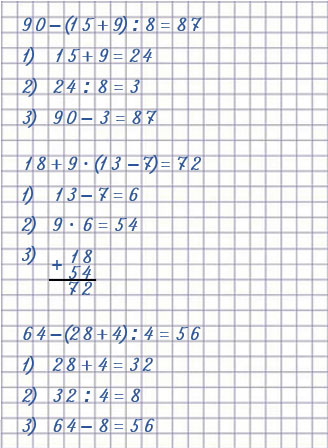 90-(15+9):8=87
1) 15+9=24
2) 24:8=3
3) 90-3=87
18+9·(13-7)=72
1) 13-7=6
2) 9·6=54
3) + 18
54
72
64-(28+4):4=56
1) 28+4=32
2) 32:4=8
3) 64-8=56